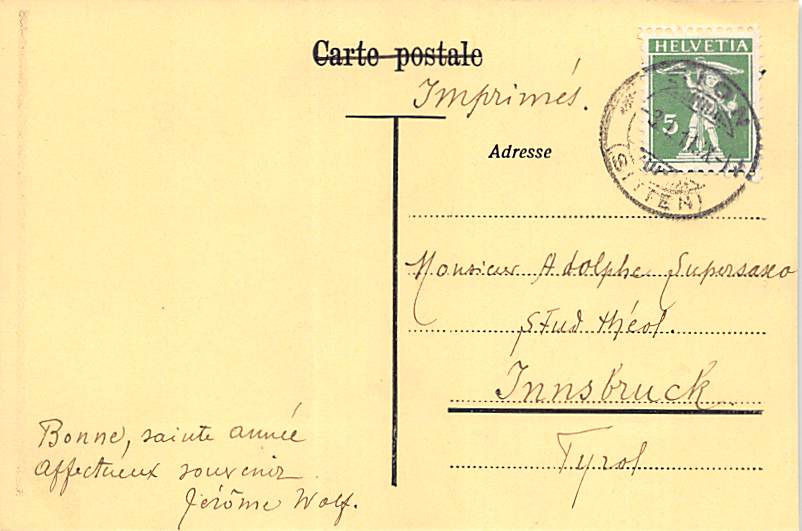 Carte postale
Imprimés.
HELVETIA
5
SION
(SITTEN)
Adresse
Monsieur Adolphe Supersaxo
Stud théol.
Innsbruck
Tyrol
Bonne, sainte année
affectueux souvenir
Jérôme Wolf.